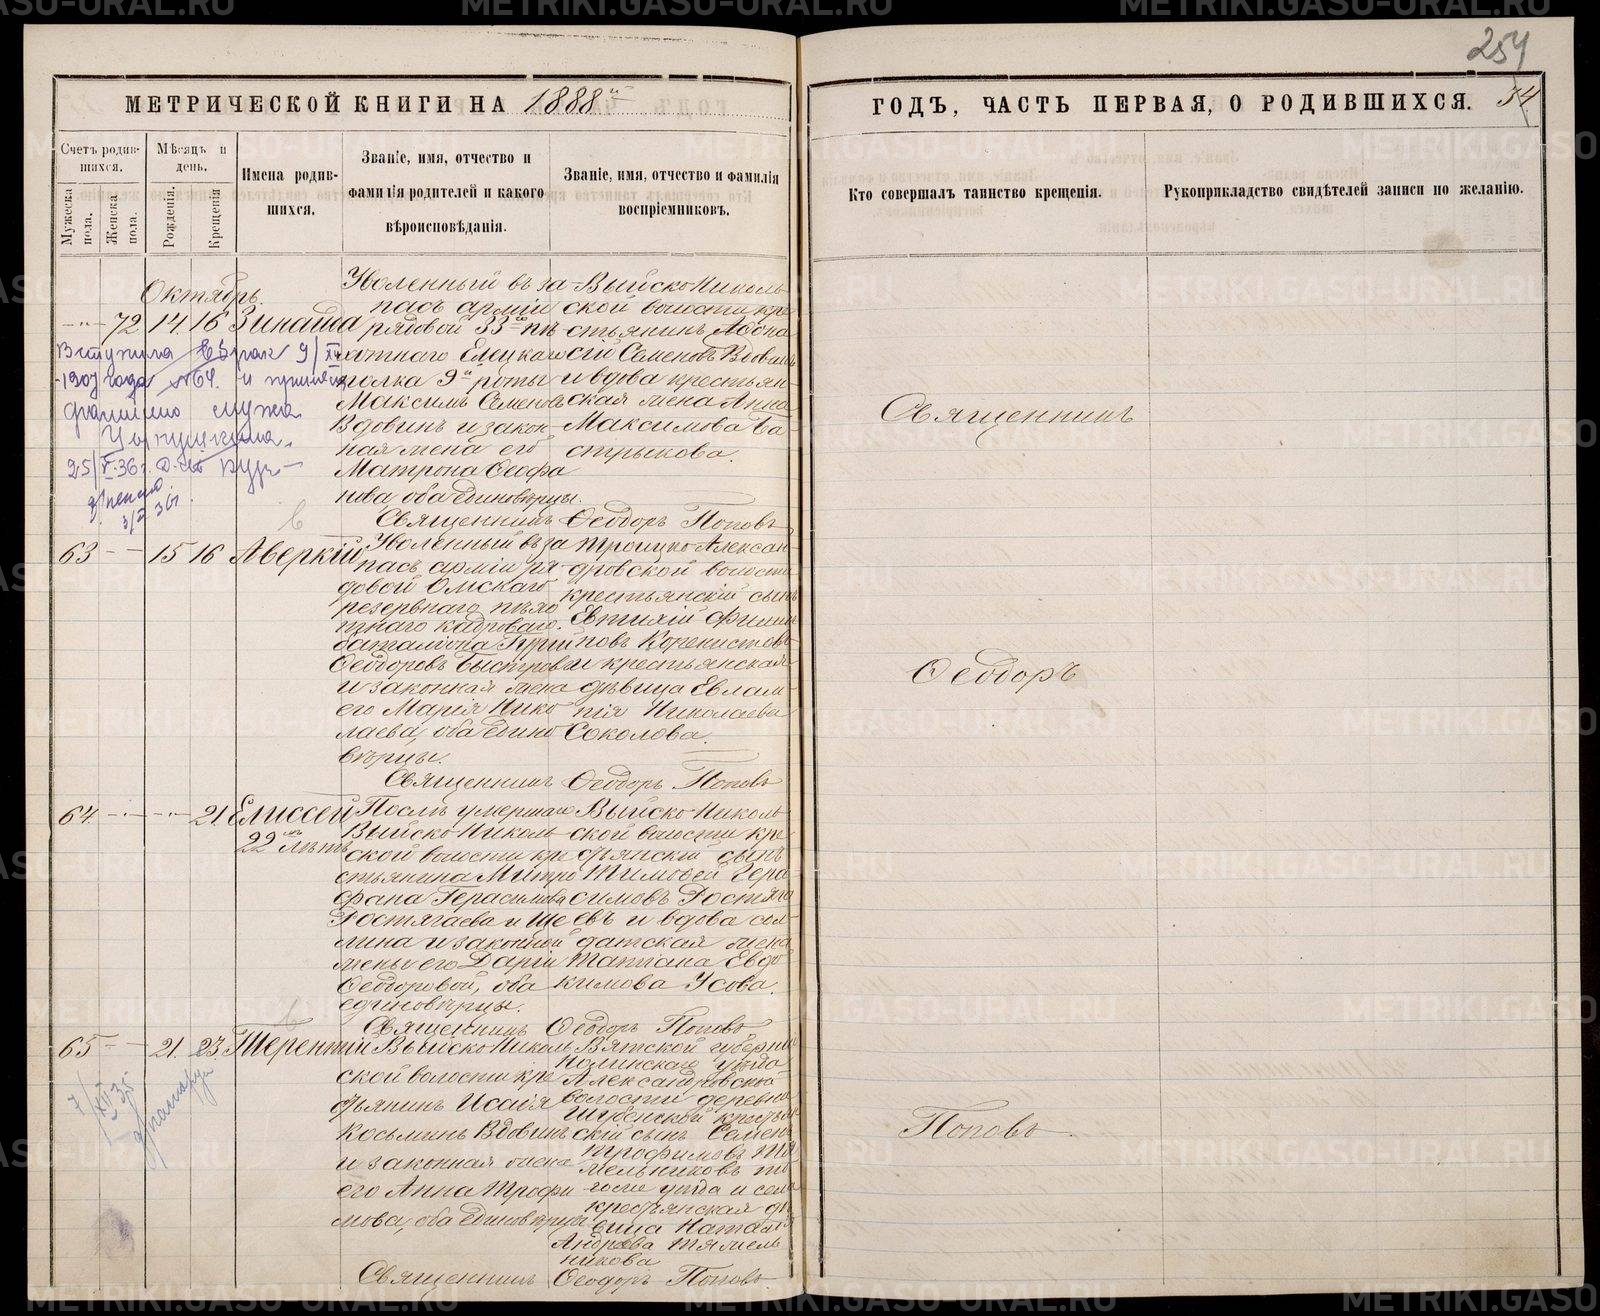 254
МЕТРИЧЕСКОЙ КНИГИ НА 1888й
ГОДЪ, ЧАСТЬ ПЕРВАЯ, О РОДИВШИХСЯ.
Счетъ родив-
шихся.
Мужеска
пола.
Женска
пола.
Мѣсяцъ и
день.
Рожденія.
Крещенія
Имена родив-
шихся.
Званіе, имя, отчество и
фамилія родителей и какого
вѣроисповѣданія.
Званіе, имя, отчество и фамилія
воспріемниковъ.
Кто совершалъ таинство крещенія.
Рукоприкладство свидѣтелей записи по желанію.
Октябрь.
72 14 16 Зинаида
Уволенный въ за-
пасъ арміи
рядовой 33го пѣ
хотнаго Елецкаго
полка 9й роты
Максимъ Семеновъ
Вдовинъ и закон
ная жена его
Матрона Ѳеофа
нова, оба единовѣрцы.
Выйско-Николь
ской волости кре
стьянинъ Аѳона
сій Семеновъ Вдовинъ
и вдова крестьян-
ская жена Анна
Максимова Ба
стрыкова.
Вступила в брак 9/
1907 года №64. и приняла
фамилию мужа
25/ 36г.
Священникъ Ѳеодоръ Поповъ
63 15 16 Аверкій
Уволенный въ за
пасъ арміи ря
довой Омскаго
резервнаго пѣхо
тнаго кадроваго
баталіона
Ѳеодоровъ Быстровъ
и законная жена
его Марія Нико
лаева, оба едино
вѣрцы.
Троицко-Алексан
дровской волости
крестьянскій сынъ
Евтихій Филип
повъ
и крестьянская
дѣвица Евлам-
пія Николаева
Соколова.
Священникъ Ѳеодоръ Поповъ
64 21 Елиссей
22 лѣтъ
Послѣ умершаго
Выйско-Николь
ской волости кре
стьянина Митро
фана Герасимова
Ростягаева и
и законной
жены его Даріи
Ѳеодоровой, оба
единовѣрцы.
Выйско-Николь
ской волости кре
стьянскій сынъ
Тимоѳей Гера
симовъ Ростяга
евъ и вдова сол-
датская жена
Татіана Евдо
кимова Усова.
Священникъ Ѳеодоръ Поповъ
65 21. 23. Терентій
Выйско-Николь
ской волости кре
стьянинъ Исаія
Косьминъ Вдовинъ
и законная жена
его Анна Трофи
мова, оба единовѣрцы
Вятской губерніи
Нолинскаго уѣзда
Александровской
волости деревни
крестьян
скій сынъ Семенъ
Трофимовъ Тя
мельниковъ то
гоже уѣзда и села
крестьянская дѣ
вица Наталія
Андреева Тямель
никова
Священникъ Ѳеодоръ Поповъ
Священникъ
Ѳеодоръ
Поповъ
METRIKI.GASO-URAL.RU